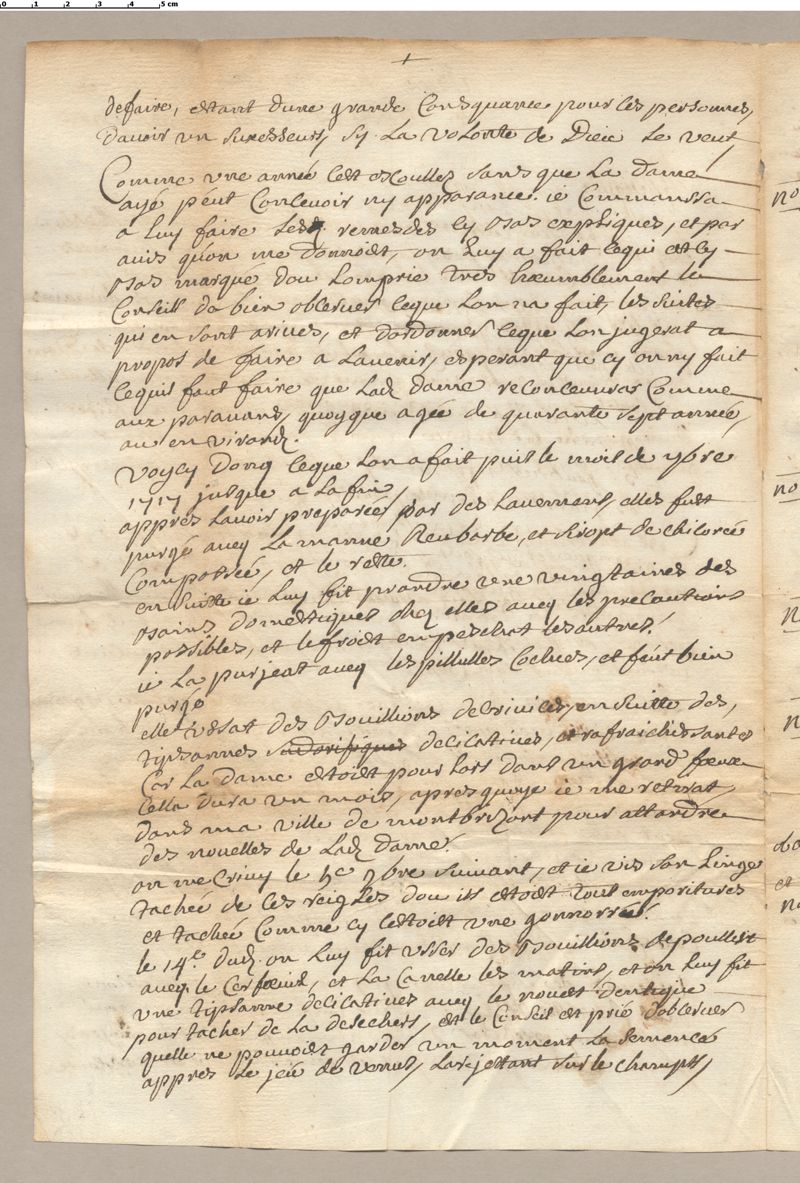 +
defaire, estant dune grande Consquance pour les personnes,
davoir un suxesseurs, sy La volonte de Dieu le veut,
Comme une année cest escoullez sans que La dame
aye peut Concevoir ny apparance. ie Commanssa
a luy faire lesd. remesdes cy bas expliques, et par
avis quon me donnoiet, on luy a fait cequi est cy
bas marque dou Lomprie tres heumblement le
Conseill da bien observer ceque Lon na fait, les suites
qui en sont arives, et dordonner ceque Lon jugerat a
propos de faire a Lavenir, esperant que cy on ny fait
cequil faut faire que Lad. dame reconceuvras Comme
aux paravand, quoyque agée de quarante sept année,
au en virond.
voycy donq ceque Lon a fait puis le mois de 9bre
1717 jusque a La fin
appres Lavoir preparéés par des Lavement, elles fust
purgé aveq La manne Reubarbe, et siropt de chicoreé
Compotseé, et le reste.
en suitte ie luy fit prandre une vingtaines des
bains domestiques cheq elles aveq les precautions
possibles, et lefroiet empeschat les autres.
ie La purjeat aveq les pillulles Cochées, et feut bien
purgé
elle usat des bouillions decrivices, en suitte des,
tipsannes sudorifiques delicatives, et rafraichissantes
Car La dame estoiet pour Lors dans un grand feux
Cella dura un mois, apres quoye ie me retirat,
dans ma ville de montbrizont pour attandre
des nouelles de Lad. dame.
on me Crivy le 5e 9bre suivant, et ie vis son Linge
tacheé de ces reigles dou ils estoiet tout emporitures
et tacheé Comme cy cestoiet une gonnorreé.
le 14e dud. on luy fit user des bouillions de poullest
aveq le Cerfeuil, et La Canelle les matins, et on luy fit
une tipsanne delicatives aveq le nouest dentique
pour tacher de La desechers, est le Conseil est prié dobserver
quelle ne pouvoiet garder un moment La semenceé
appres Le jeu de venus, Larejettant sur le champts,
no
no
n
n
et
n